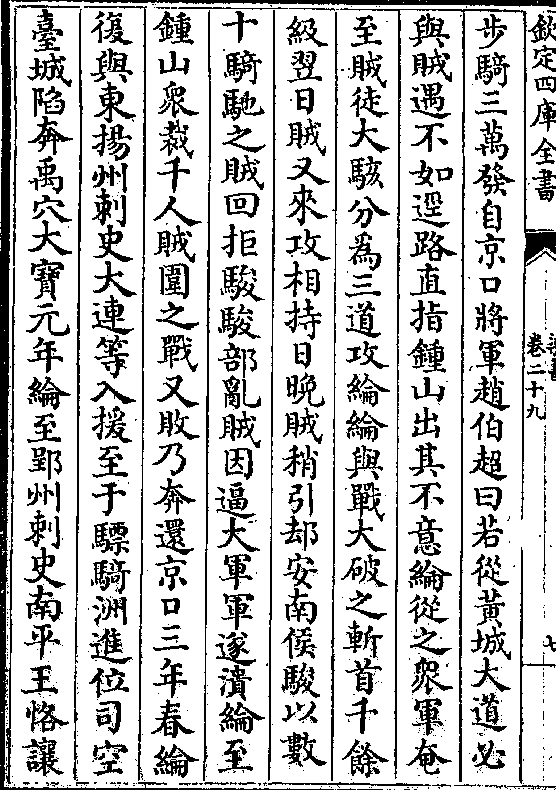 欽定四庫全書
卷二十九
七
步騎三萬發自京口將軍趙伯超曰若從黃城大道必
與賊遇不如逕路直指鍾山出其不意綸從之衆軍奄
至賊徒大駭分爲三道攻綸綸與戰大破之斬首千餘
級翌日賊又來攻相持日晚賊稍引却安南侯駿以數
十騎馳之賊回拒駿駿部亂賊因逼大軍軍遂潰綸至
鍾山衆裁千人賊圍之戰又敗乃奔還京口三年春綸
復與東揚州刺史大連等入援至于驃騎洲進位司空
臺城陷奔禹穴大寶元年綸至郢州刺史南平王恪讓